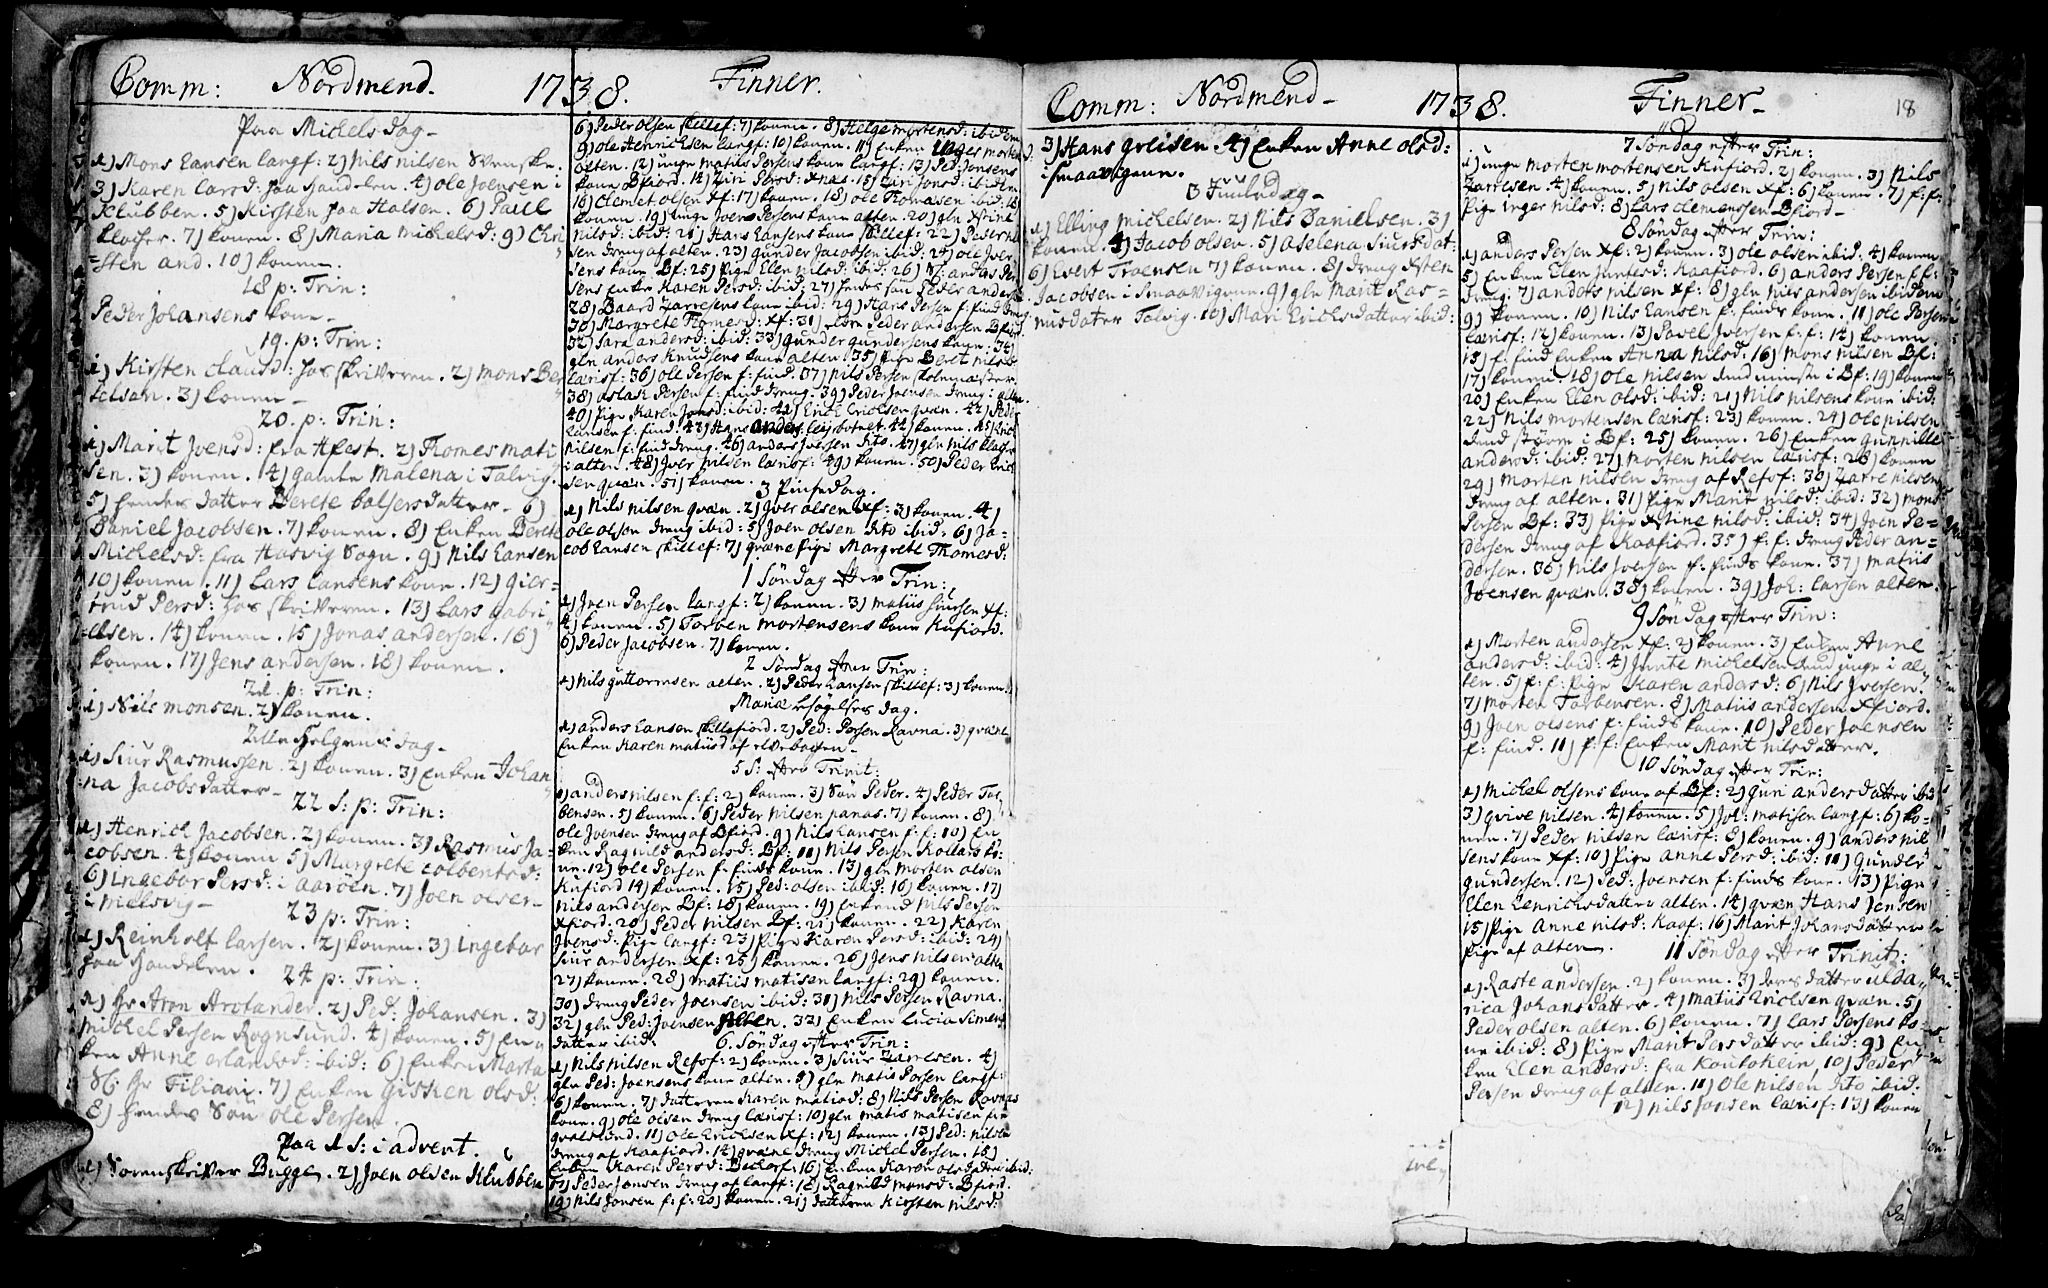 Comm: Nordmend. 1738. Finner.
Paa Michelsdag
1) Mons Hansen langf: 2) Nils Nilsen Svenske.
3) Karen Larsd: paa Handelen. 4) Ole Joensen i
Klubben. 5) Kirsten paa Halsen. 6) Paul
Klocker. 7) konen. 8) Maria Michelsd: 9) Chri
sten and. 10) konen.
18 p: Trin:
Peder Johansens kone.
19. p: Trin:
1) Kirsten Clausd: hos skriveren. 2) Mons Ber
telsøn. 3) konen
20. p: Trin:
1) Marit Joensd: fra Hfest. 2) Thomes Mati
sen. 3) konen. 4) gamle Malena i Talvig.
5) hendes datter Berete Balzersdatter. 6)
Daniel Jacobsen. 7) konen. 8) Enken Berete
Michelsd: fra Hasvig Sogn. 9) Nils Hansen
10) konen. 11) Lars Hansens kone. 12) Gier=
trud Persd: hos skriveren. 13) Lars Gabri
elsen. 14) konen. 15) Jonas Andersen. 16)
konen. 17) Jens Andersen. 18) konen.
21. p: Trin:
1) Nils Monsen. 2) konen.
Alle Helgens dag
1) Siur Rasmussen. 2) konen. 3) Enken Johan
na Jacobsdatter
22 S: p: Trin:
1) Henrich Jacobsen. 2) konen. 3) Rasmus Ja=
cobsen. 4) konen 5) Margrete Colbentsd:
6) Ingebor Persd: i Aarøen. 7) Joen Olsen
i Mielsvig
23 p: Trin:
1) Reinholt Larsen. 2) konen. 3) Ingebor
paa Handelen.
24 p: Trin:
1) Hr Aron Arctander. 2) Ped: Johansen. 3)
Michel Persen Rognsund. 4) konen. 5) En
ken Anne Erlandsd: ibid: 6) Enken Marta
Sl: Hr Filiavi. 7) Enken Gisken Olsd:
8) hendes Søn Ole Persen
Paa 1 S: i advent.
1) Sorenskriver Bugge. 2) Joen Olsen Klubben
6) Peder Olsen skillef: 7) konen. 8) Helge Mortensd: ibidem
9) Ole Henrichsen langf: 10) konen. 11) Enken Inger Morten
Alten. 12) unge Matiis Persens kone langf: 13) Ped: Jonsens
kone Bfiord. 14) Ziri Persd: Xnæs. 15) Ziri Jonsd: ibidem
16) Clemet Olsen Xf: 17) konen. 18) Ole Thomæsen ibid: 18
konen. 19) unge Joen Persens kone Alten. 20) gln Xstine
Nilsd: ibid: 21) Hans Hansens kone skillef: 22) Peder Nil
sen dreng af Alten. 23) Gunder Jacobsen ibid: 24) Ole Joen
sens kone Bf: 25) Pige Elen Nilsd: ibid: 26) Sl: Andas Per
sens Enke Karen Persd: ibid: 27) hendes søn Peder Anders
28) Baard Zarresens kone ibid: 29) Hans Persen f: find dreng
30) Margrete Thomesd: Xf: 31) Peder Andersen Bfiord
32) Sara Andersd: ibid: 33) Gunder Gundersens kone. 34)
gln Anders Knudsens kone Alten. 35) Pige Beret Nilsd:
lærisf: 36) Ole Persen f: find. 37) Nils Persen skolemester
38) Aslak Persen f: find dreng. 39) Peder Joensen dreng i Alten.
40) Pige Karen Jonsd: ibid: 41) Erich Erichsen qvæn. 42) Peder
Hansen f: find. 43) Hans Anders: leirbotnet. 44) konen. 45) Erich
Nilsen f: find dreng. 46) Anders Joersen dito. 47) gln Nils
i Alten. 48) Iver Nilsen lærisf: 49) konen. 50) Peder Erich
sen qvæn. 51) konen.
3 Pintsedag.
1) Nils Nilsen qvæn. 2) Iver Olsen Xf: 3) konen. 4)
Ole Olsen dreng ibid: 5) Joen Olsen dito ibid. 6) Ja=
cob Hansen skillef: 7) qvæne Pige Margrete Thomesd:
1 Søndag efter Trin:
1) Joen Persen langf: 2) konen. 3) Matiis Siursen Xf:
4) konen. 5) Torben Mortensens kone Kufiord.
6) Peder Jacobsen. 7) konen.
2 Søndag efter Trin:
1) Nils Guttormsen Alten. 2) Peder Hansen skillef: 3) konen.
Mariæ besøgelses dag.
1) Anders Hansen skillefiord. 2) Ped: Persen Ravna. 3) qvæn
Enken Karen Matiisd af Elvebakken
5 S: efter Trinit:
1) Anders Nilsen f: f: 2) konen. 3) Søn Peder. 4) Peder Tor
bensen. 5) konen. 6) Peder Nilsen Panas. 7) konen. 8)
Ole Joensen dreng af Bfiord. 9) Nils Hansen f: f: 10) En
ken Ragnild Andersd: Bf: 11) Nils Persen Kollars ko=
ne. 12) Ole Persen f: finds kone. 13) gln Morten Olsen
Kufiord 14) konen. 15) Ped: Olsen ibid: 16) konen. 17)
Nils Andersen Bf: 18) konen. 19) Nils Persen
Xfiord. 20) Peder Nilsen Bf: 21) konen. 22) Karen
Joensd: Pige langf: 23) Pige Karen Persd: ibid: 24)
Siur Andersen Xf: 25) konen. 26) Jens Nilsen Alten
27) konen. 28) Matiis Matisen langf: 29) konen.
30) dreng Peder Joensen ibid: 31) Nils Persen Ravna.
32) gln Ped: Joensen Alten. 32) Enken Lucia Simens
datter ibid.
6. Søndag efter Trin:
1) Nils Nilsen Refsf: 2) konen. 3) Siur Zarresen. 4)
gln Ped: Joensens kone Alten. 5) gln Matis Persen langf:
6) konen. 7) datteren Karen Matiisd: 8) Nils Persen Ravnas
kone. 9) Ole Olsen dreng lærisf: 10) gln Matis Matisen fra
Qvalsund. 11) Ole Erichsen Xf: 12) konen. 13) Ped: Nilsen
dreng af Kaafiord. 14) qvæne dreng Michel Persen. 15)
Enken Karen Persd: 16) Enken Karen Olsdatter ibid:
17) Peder Jonsen dreng af langf: 18) Ragnild Monsd: Bfiord.
19) Nils Jonsen f: f: 20) konen. 21) datteren Kirsten Nilsd:
Comm: Nordmend 1738. Finner 18
3) Hans Greisen. 4) Enken Anne Olsd:
i Smaavigene.
3 Juuledag
1) Elling Michelsen. 2) Nils Danielsen. 3)
konen. 4) Jacob Olsen. 5) Aselena Siursdat:
6) Evert Troensen 7) konen. 8) dreng Xsten
Jacobsen i Smaavigene. 9) gln Marit Ras=
musdatter Talvig. 10) Mari Erichsdatter ibid:
7 Søndag efter Trin:
1) unge Morten Mortensen Kufiord. 2) konen. 3) Nils
Zarresen. 4) konen. 5) Nils Olsen Xf: 6) konen. 7) f: f:
Pige Inger Nilsd: 8) Lars Clemensen Bfiord
8 Søndag efter Trin:
1) Anders Persen Xf: 2) konen. 3) Ole Olsen ibid: 4) konen
5) Enken Elen Juntesd: Kaafiord. 6) Anders Persen f: f:
dreng. 7) Anders Nilsen Xf: 8) gln Nils Andersen ibidem
9) konen. 10) Nils Hansen f: finds kone. 11) Ole Persen
lærisf: 12) konen. 13) Povel Iversen f: f: 14) konen.
15) f: find Enken Anna Nilsd: 16) Mons Nilsen Bf:
17) konen. 18) Ole Nilsen dend minste i Bf: 19) konen
20) Enken Elen Olsd: ibid: 21) Nils Nilsens kone ibid:
22) Nils Mortensen lærisf: 23) konen. 24) Ole Nilsen
dend større i Bf: 25) konen. 26) Enken Gunnille
Andersd: ibid: 27) Morten Nilsen lærisf: 28) konen
29) Morten Nilsen dreng af Refsf: 30) Zarre Nilsen
dreng af Alten. 31) Pige Marit Nilsd: ibid: 32) Mons
Persen Bf: 33) Pige Xstine Nilsd: ibid: 34) Joen Pe=
dersen dreng af Kaafiord. 35) f: f: dreng Peder An=
dersen. 36) Nils Joersen f: finds kone. 37) Matiis
Joensen qvæn. 38) konen. 39) Joh: Larsen Alten.
9 Søndag efter Trin:
1) Morten Andersen Xf: 2) konen. 3) Enken Anne
Andersd: ibid: 4) Junte Michelsen dend unge i Al=
ten. 5) f: f: Pige Karen Andersd: 6) Nils Iversen.
7) Morten Torbensen. 8) Matiis Andersen Xfiord.
9) Joen Olsens f: finds kone. 10) Peder Joensen
f: find. 11) f: f: Enken Marit Nilsdatter.
10 Søndag efter Trin:
1) Michel Olsens kone af Bf: 2) Guri Andersdatter ibid
3) Qvive Nilsen. 4) konen. 5) Joh: Matisen langf: 6) ko=
nen. 7) Peder Nilsen lærisf: 8) konen. 9) Anders Nil
sens kone Xf: 10) Pige Anne Persd: ibid: 11) Gunder
Gundersen. 12) Ped: Joensen f: finds kone. 13) Pige
Elen Henrichsdatter Alten. 14) qvæn Hans Jensen
15) Pige Anne Nilsd: Kaaf: 16) Marit Johansdatter
Pige af Alten.
11 Søndag efter Trinit:
1) Raste Andersen. 2) konen. 3) deres datter Ulda=
rica Johansdatter. 4) Matiis Erichsen qvæn. 5)
Peder Olsen Alten. 6) konen. 7) Lars Persens ko=
ne ibid: 8) Pige Marit Persdatter ibid: 9) En
ken Elen Andersd: fra Koutokein. 10) Peder
Persen dreng af Alten. 11) Ole Nilsen dito ibid.
12) Nils Jonsen lærisf: 13) konen